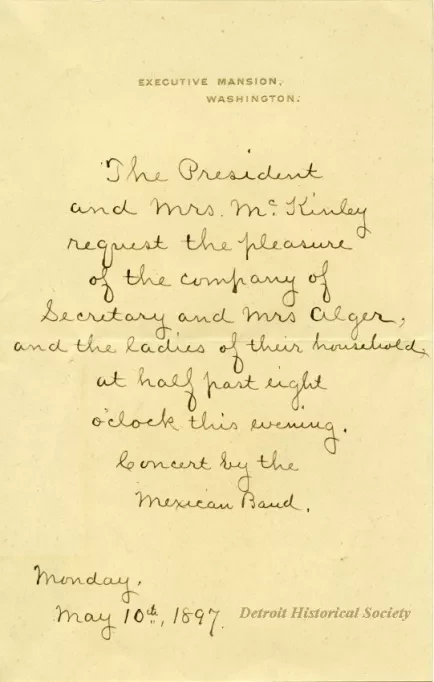 EXECUTIVE MANSION,
WASHINGTON.
The President
and Mrs. Mc Kinley
request the pleasure
of the company of
Secretary and Mrs Alger,
and the ladies of their household,
at half past eight
o'clock this evening.
Concert by the
Mexican Band.
Monday,
May 10th, 1897.
Detroit Historical Society